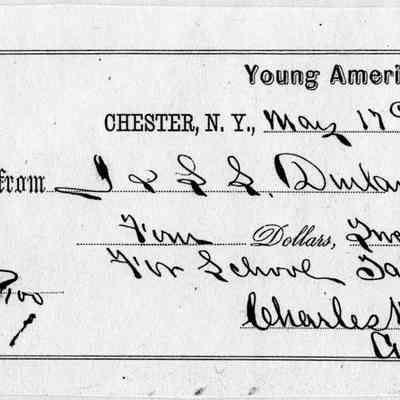 Young Ameri
CHESTER, N. Y., May 17
from J & L L. Dunla
Four Dollars,
For School Ta
/100
Charles